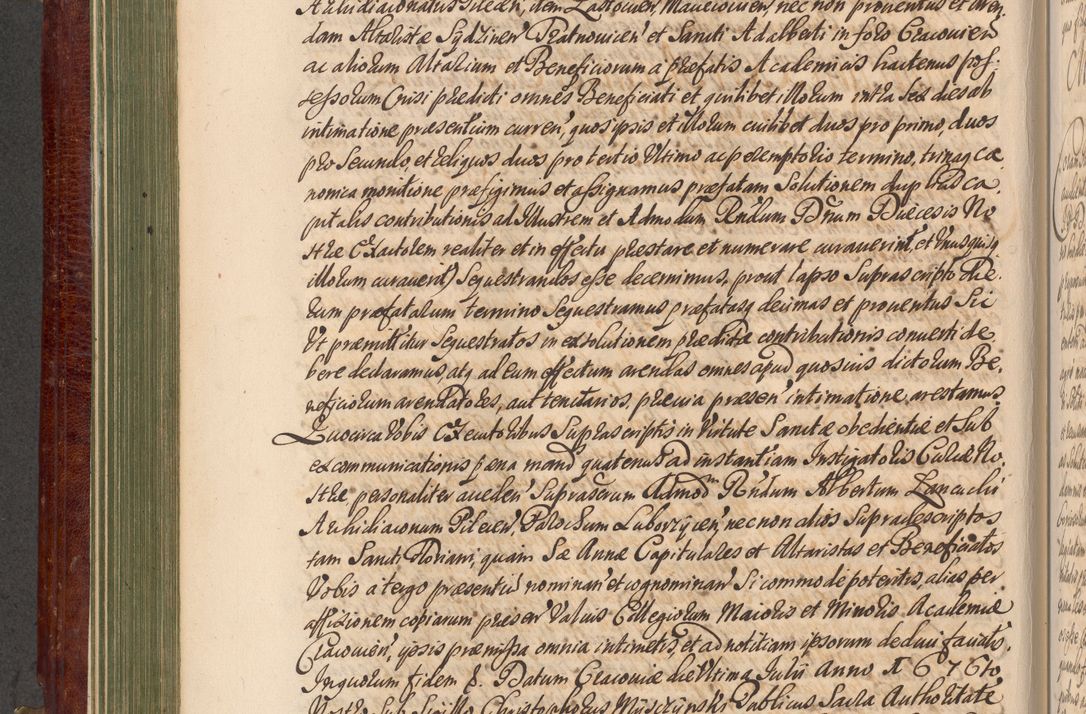 Archidiaconatus Pilcen, dem Zastovien, Maucovicien, nec non proventus et Aren
dam Altaristæ Sydzinen Pratnovicen et Sancti Adalberti in foro Cracovien
ac aliorum Altarium et Beneficiorum a præfatis Academicis hactenus pos-
sessorum Quasi prædicti omnes Beneficiati et quilibet illorum intra sex dies ab
intimatione præsentium curren, quos ipsis et illorum cuilibet duos pro primo, duos
pro secundo et reliquos duos pro tertio Ultimo ac peremptorio termino, trinaq Ca
nonica monitione præfigimus et assignamus præfatam Solutionem dupli as ca
pitalis contributionis ad Illustrem et Admodum Rndum Dnum Diæcesis No
stræ Exactorem realiter et in effectu præstare et numerare curaverint, et Unusquisq
illorum curaverit) Sequestrandos esse decernimus, prout lapso Suprascripto Die
rum præfatarum termino Sequestramus præfatasq decimas et proventus Sic
Ut præmittitur Sequestratos in exsolutionem prædictæ contributionis converti de
bere declaramus, atq ad eum effectum arendas omnes apud quosvis dictorum Be
neficiorum arendatores, aut tenutarios, prævia præsen intimatione arestamus
Quocirca Vobis Executoribus Suprascriptis in Virtute Sanctæ obedientiæ et Sub
excommunicationis pæna mand quatenus ad instantiam Instigatoris Curiæ No
stræ personaliter acceden Supradictum Admod Rndum Albertum Lancuchi
Archidiaconum Pilcen, Parochum Luborzycen, nec non alios Supradescriptos
tam Sancti Floriani, quam Sæ Annæ Capitulares et Altaristas et Beneficiatos
Vobis a tergo præsentiu nominan et cognominan Si commode poteritis, alias per
affixionem copiarum præsen Valvis Collegiorum Maioris et Minoris Academiæ
Cracovien, ipsis præmissa omnia intimetis, et ad notitiam ipsorum deduci faciatis.
In quorum fidem &. Datum Cracoviæ die Ultima Iulii Anno 1676to
Christophorus Publicus Sacra Authoritate